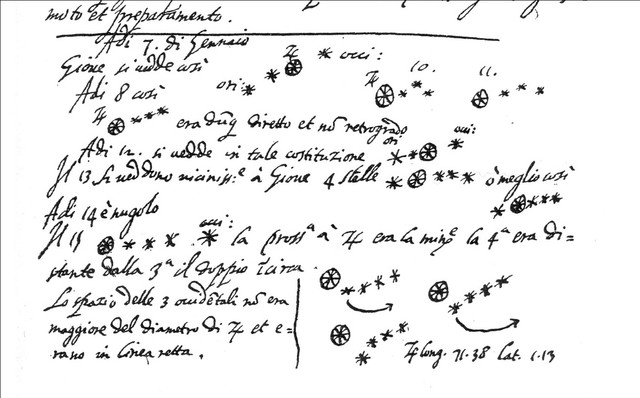 moto et preparamento.
Adi 7. di Gennaio
Gioue si uedde così ori: ♃ occi:
Adi 8 così ♃ 10. 11.
♃ era dūq diretto et nō retrogrado
Adi 12. si uedde in tale costituzione ori: occi:
Il 13 si ueddono uicinissᵉ à Gioue 4 stelle ò meglio così
Adi 14 è nugolo
Il 15 occi: la prossᵃ à ♃ era la minᵉ la 4ᵃ era di=
stante dalla 3ᵃ il doppio circa
Lo spazio delle 3 occidētali nō era
maggiore del diametro di ♃ et e=
rano in linea retta.
♃ long. 71.38 lat. 1.13